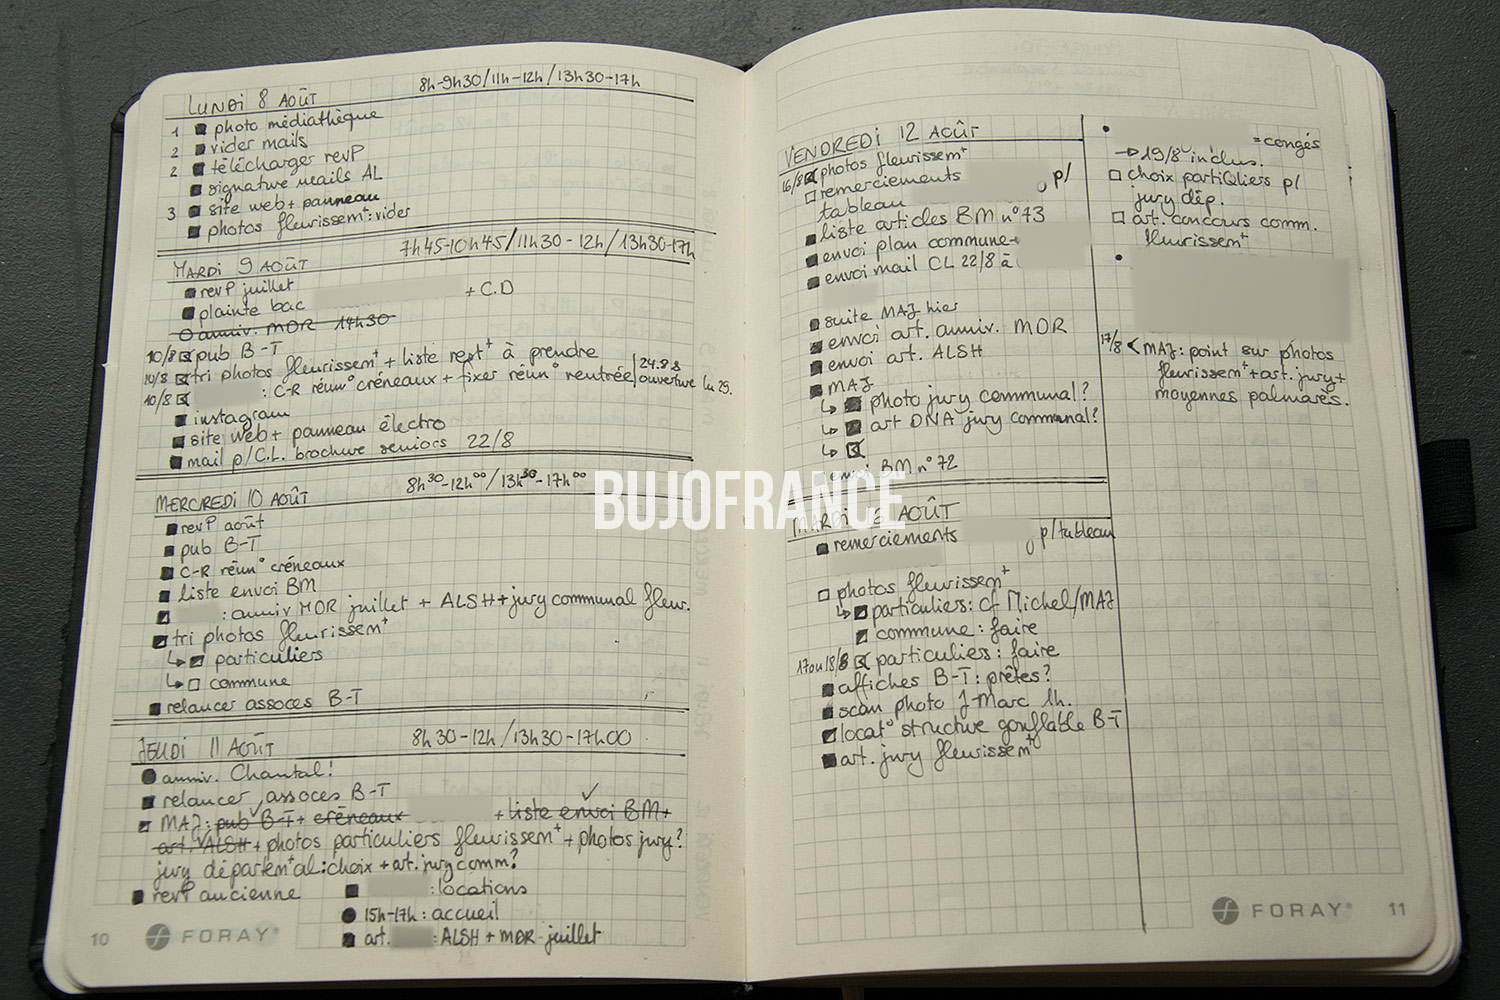 LUNDI 8 AOÛT 8h-9h30/11h-12h/13h30-17h
1 photo médiathèque
2 vider mails
2 télécharger revP
signature mails AL
3 site web + panneau
photos fleurissemt : vider
MARDI 9 AOÛT 7h45-10h45/11h30-12h/13h30-17h
revP juillet
plainte bac + C.D
anniv. MDR 14h30
10/8 pub B-T
10/8 tri photos fleurissemt + liste rest à prendre
10/8 : C-R réun° créneaux + fixer réun° rentrée 24.8.8 ouverture lu 29.
instagram
site web + panneau électro
mail p/C.L. brochure seniors 22/8
MERCREDI 10 AOÛT 8h30-12h00/13h30-17h00
revP août
pub B-T
C-R réun° créneaux
liste envoi BM
: anniv MDR juillet + ALSH + jury communal fleur.
tri photos fleurissemt
↳ particuliers
↳ commune
relancer assoces B-T
JEUDI 11 AOÛT 8h30-12h/13h30-17h00
anniv. Chantal!
relancer assoces B-T
MAJ : pub B-T + créneaux + liste envoi BM +
art. ALSH + photos particuliers fleurissemt + photos jury?
jury départemtal : choix + art. jury comm?
revP ancienne
: locations
15h-17h : accueil
art. : ALSH + MDR juillet
10 FORAY
VENDREDI 12 AOÛT
16/8 photos fleurissemt
remerciements p/
tableau
liste articles BM n°73
envoi plan commune
envoi mail CL 22/8 à
suite MAJ hier
envoi art. anniv. MDR
envoi art. ALSH
MAJ
↳ photo jury communal?
↳ art DNA jury communal?
↳
envoi BM n°72
MARDI 16 AOÛT
remerciements p/tableau
photos fleurissemt
↳ particuliers : cf Michel/MAJ
commune : faire
17 ou 18/8 particuliers : faire
affiches B-T : prêtes?
scan photo J-Marc 1h.
locat° structure gonflable B-T
art. jury fleurissemt
= congés
→ 19/8 inclus.
choix partiQliers p/
jury dép.
art. concours comm.
fleurissemt
17/8 < MAJ : point sur photos
fleurissemt + art. jury +
moyennes palmarès.
FORAY 11
BUJOFRANCE